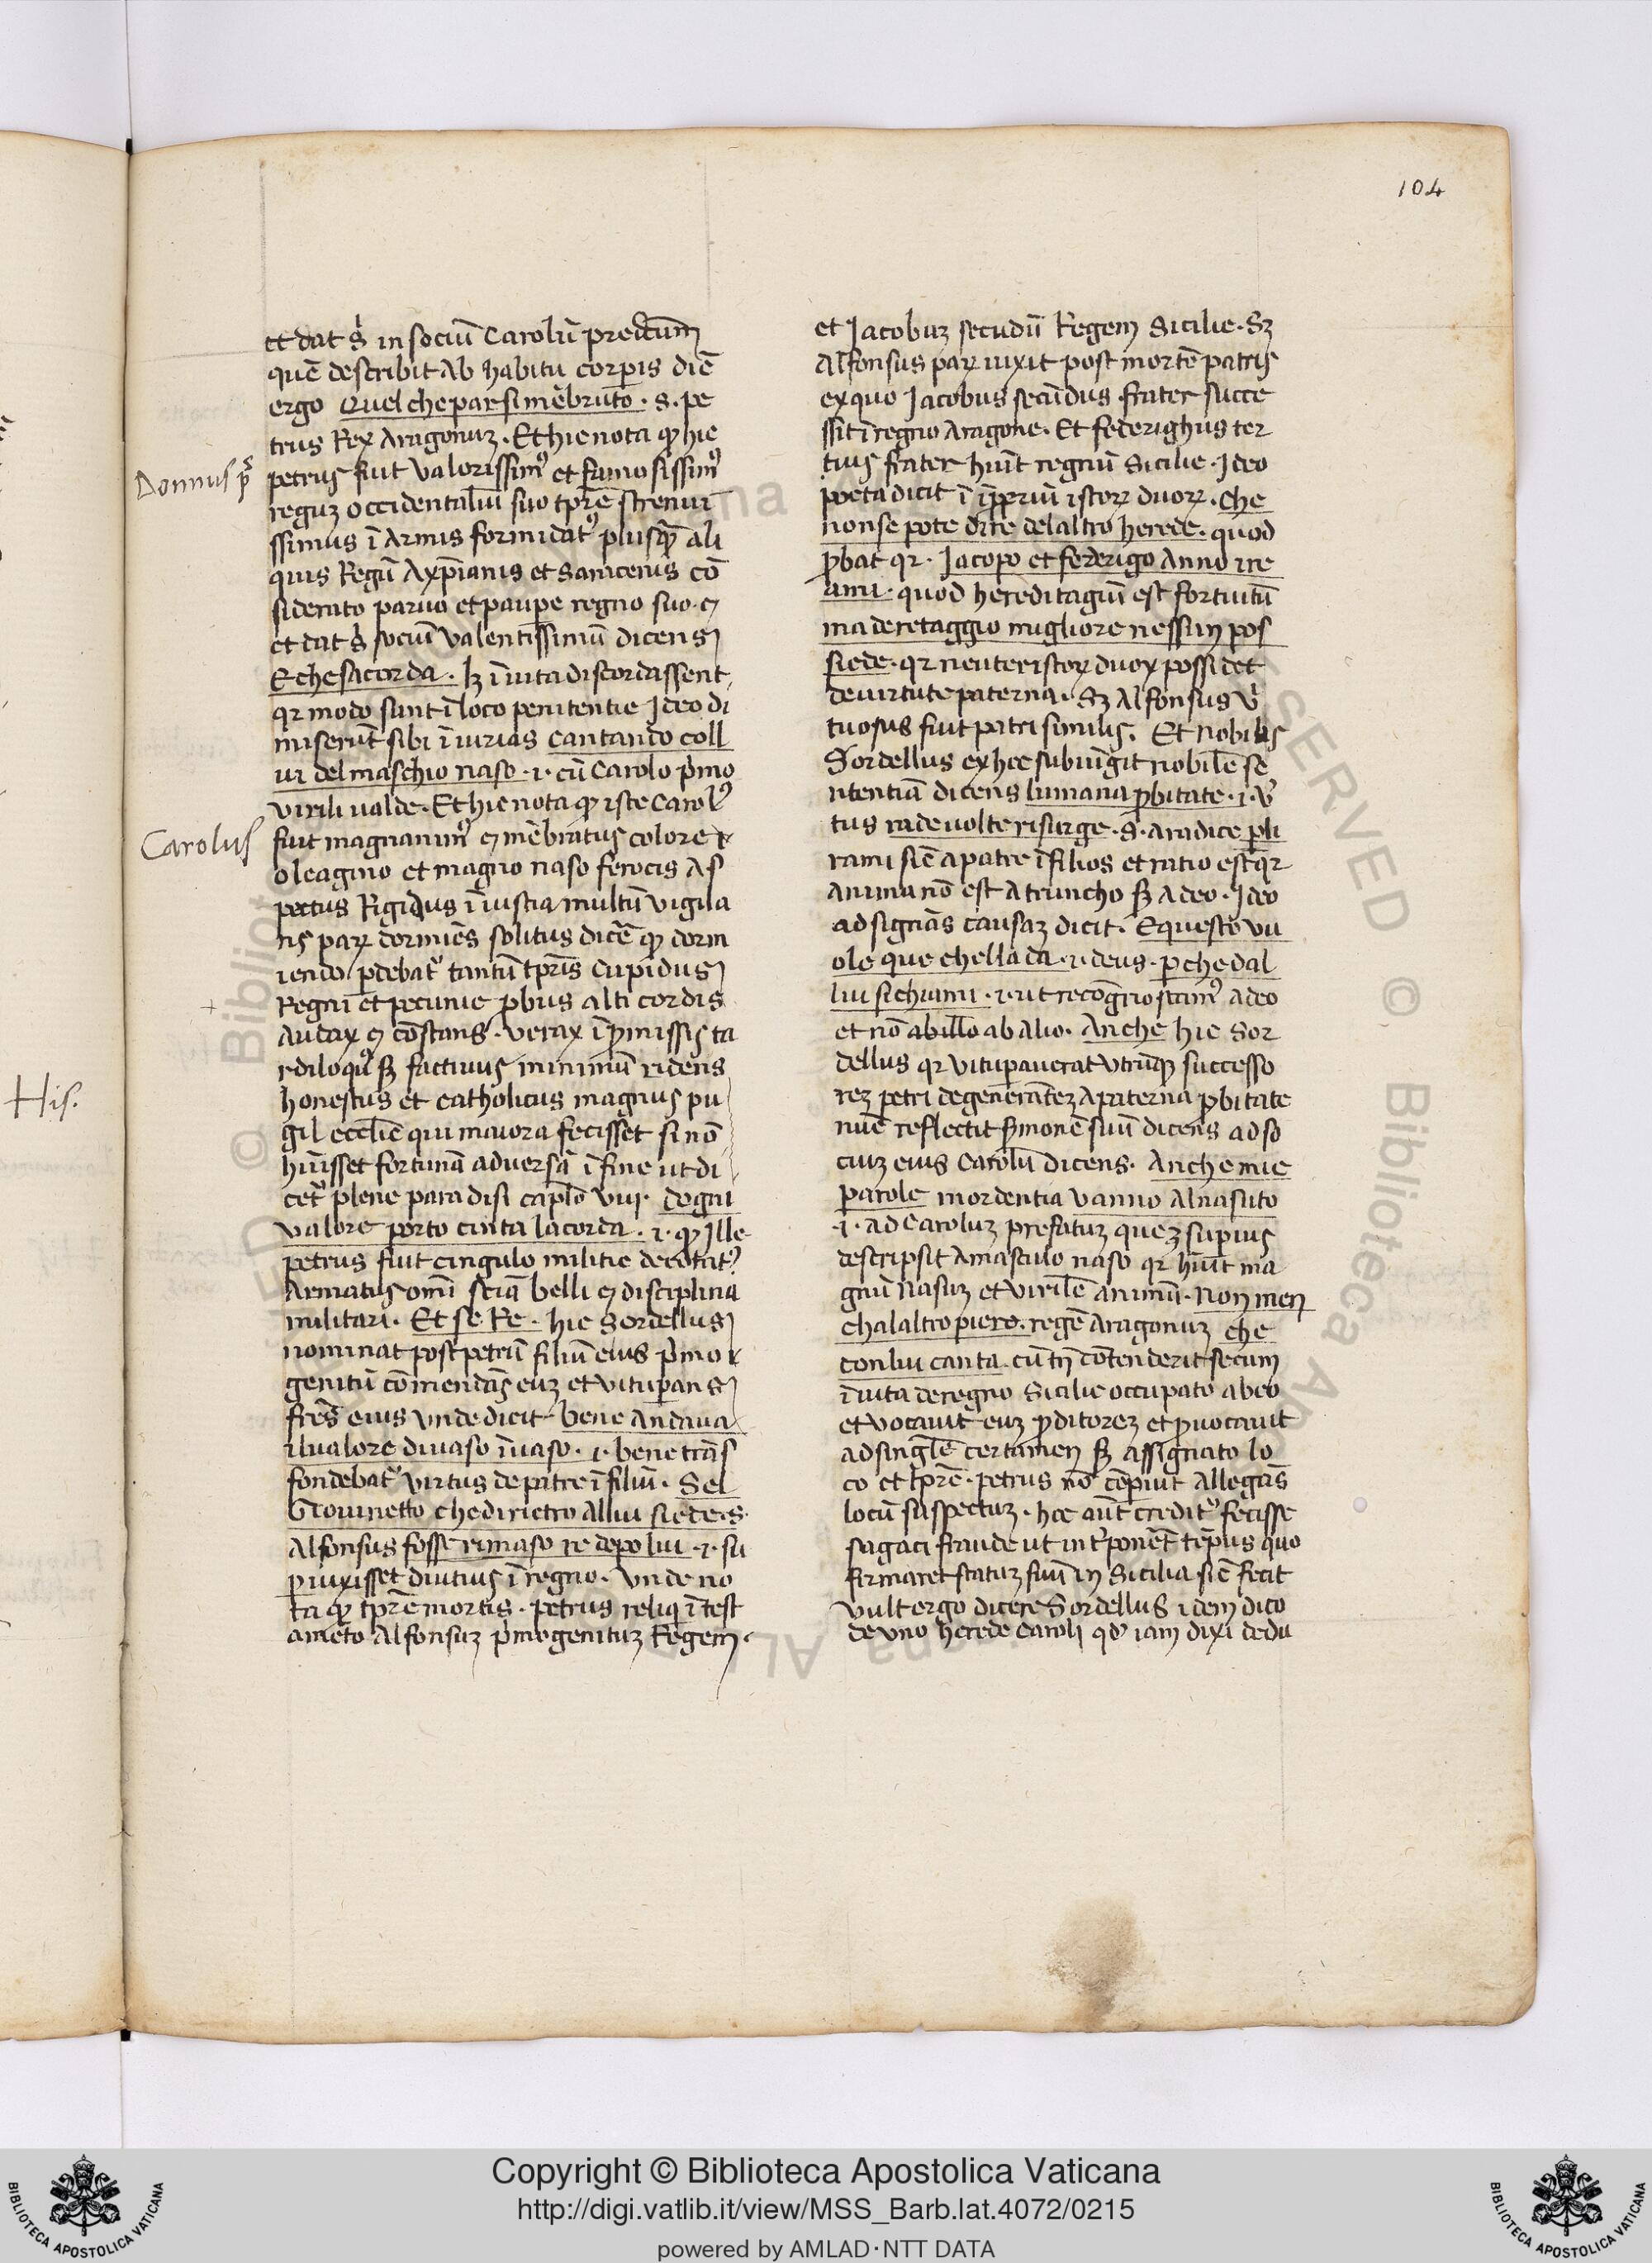 104
et dat s̉ in sociū Carolū predictum
quē describit Ab habitu corp̱is diē
ergo Quel che par si mēbruto · S · pe
trus Rex Aragonuz · Et hic nota qd̉ hic
Donnus pͬ
petrus fuit valorissimꝰ et famosissimꝰ
reguz occidentaliū suo tp̄re strenui
ssimus ī Armis formidatꝰ plusꝗ̄ ali
quis Regū Axp̄ianis et Saracenis cō
siderato paruo et paupe regno suo · ⁊
et dat s̉ sociū valentissimū dicens
E che sacorda · lꝫ ī uita discordassent
qꝛ modo sunt ī loco penitentie Ideo di
miserūt sibi īiurias Cantando coll
ui del maschio naso · i · cū Carolo p̉mo
virili ualde · Et hic nota qd̉ iste Carolꝰ
Carolus
fuit magnanimꝰ ⁊ mēbratus colore
oleagino et magno naso ferocis As
pectus Rigidus ī iusticia multū vigila
ns parꝝ dormiēs solitus dicē̉ qd̉ dorm
iendo p̱debat̉ tantū tp̄ris Cupidus
Regni et pecunie p̱bus alti cordis
Audax ⁊ cōstans · verax ī p̱missis ta
rdiloqꝰ sꝫ factiuus minimū ridens
honestus et catholicus magnus pu
His.
gil ecclīe qui maiora fecisset si nō
hūisset fortunā aduersā ī fine ut di
cet̉ plene paradisi cap̄lo viii · dogni
valore porto cinta la corda · i · qd̉ Ille
petrus fuit cingulo militie decoratꝰ
Armatus omī sciā belli ⁊ disciplina
militari · Et se Re · hic Sordellus
nominat post petrū filiū eius p̉mo
genitū cōmendās euz et vitup̱ans
fr̄es eius vnde dicit bene andaua
il ualore di uaso ī uaso · i · bene trās
fondebat̉ virtus de patre ī filiū · Se l
Giouinetto che dirietro allui siede · s ·
Alfonsus fosse rimaso re depo lui · i · su
p̱uixisset diutius ī regno · Vnde no
ta qd̉ tp̄re mortis · petrus reliqͥ ī test
amēto Alfonsuz p̉mogenituz Regem ·
et Jacobuz secūdū Regem Sicilie · Sꝫ
Alfonsus parꝝ uixit post mortē patris
ex quo Jacobus secūndus frater succe
ssit ī regno Aragone · Et federighus ter
tius frater hūit regnū Sicilie · Ideo
poeta dicit ī īp̱priū istoꝝ duoꝝ · Che
non se pote dire delaltro herede · quod
p̱bat qꝛ · Jacopo et federigo Anno i re
ami · quod hereditagiū est fortuitū
ma deretaggio migliore nessun pos
siede · qꝛ neuter istoꝝ duoꝝ possidet
de uirtute paterna · Sꝫ Alfonsus v̉
tuosus fuit patri similis · Et nobilis
Sordellus ex hoc subiūgit nobilē se
ntentiā dicens lumana p̱bitate · i · v̉
tus rade uolte risurge · S · a radice p̱ li
rami sīc a patre ī filios et ratio est qꝛ
Anima nō est A truncho sꝫ A deo · Ideo
adsignās causaz dicit · E questo vu
ole que che lla da · i · deus · p̱che dal
lui si chiami · i · ut recōgnoscamꝰ a deo
et nō ab illo ab alio · Anche hic Sor
dellus qꝛ vitup̱auerat vtrūqꝫ successo
rez petri degenerātez A paterna p̱bitate
nūc reflectit s̉monē suū dicens ad so
ciuz eius Carolū dicens · Anche mie
parole mordentia vanno al nasuto
· i · ad Caroluz prefatuz quez sup̱ius
descripsit A masculo naso qꝛ hūit ma
gnū Nasuz et virilē animū · Non men
chalaltro piero · regē Aragonuz che
con lui canta · cū tn̄ cōtenderit secum
ī uita de regno Sicilie occupato ab eo
et vocauit euz p̱ditorez et p̱uocauit
ad singlē certamen sꝫ assignato lo
co et tp̄re · petrus nō cōp̱uit Allegās
locū suspectuz · hoc aūt credit̉ fecisse
sagaci fraude ut int̉ponēt tēpus quo
firmaret statuz suū in Sicilia sīc fecit
vult ergo dicere Sordellus idem dico
de vno herede Caroli qd̉ iam dixi de du
Copyright © Biblioteca Apostolica Vaticana
http://digi.vatlib.it/view/MSS_Barb.lat.4072/0215
powered by AMLAD·NTT DATA